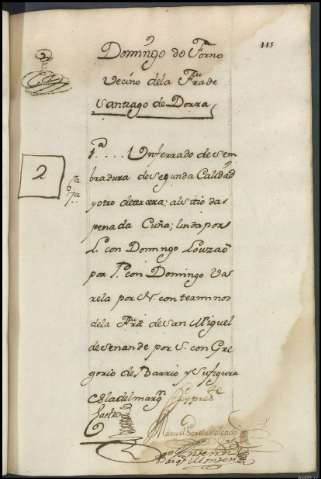 115
Domingo do Forno
Vecino dela Fra de
Santiago de Dorra
2
1a .... Un ferrado de sem
bradura de segunda Calidad
y otro de terzera; al sitio das
pena da Cuña; linda por
L. con Domingo Louzao
por P. con Domingo Va
rela por N. con terminos
dela Fra de San Miguel
de senande por S. con Gre
gorio de Barrio y su figura
es la del marg.n